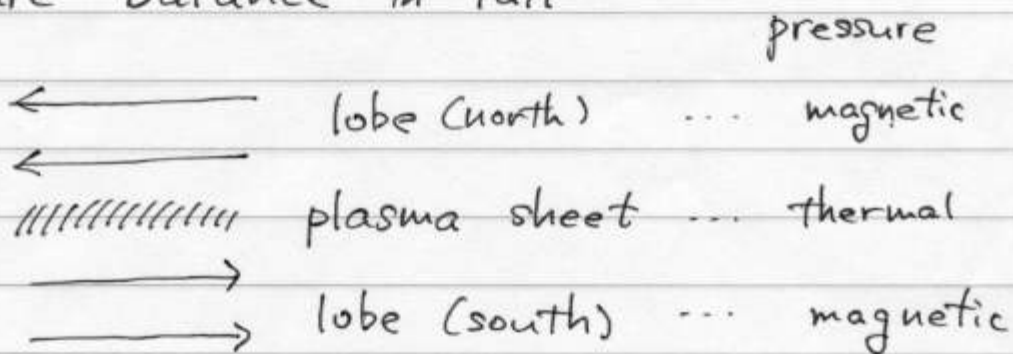 balance in tail
pressure
lobe (north) ... magnetic
plasma sheet ... thermal
lobe (south) ... magnetic